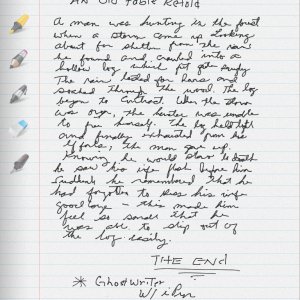 AN Old Fable Retold
A man was hunting in the forest
when a storm came up. Looking
about for shelter from the rain
he found and crawled into a
hollow log which fit quite snugly
The rain lasted for hours and
soaked through the wood. The log
began to contract. When the storm
was over, the hunter was unable
to free himself. The log held tight
and finally exhausted from his
efforts, the man gave up.
Knowing he would starve to death
he saw his life flash before him
Suddenly he remembered that he
had forgotten to kiss his wife
good bye - this made him
feel so small that he
was able to slip out of
the log easily.
THE END
* GhostWriter
W/ iPen